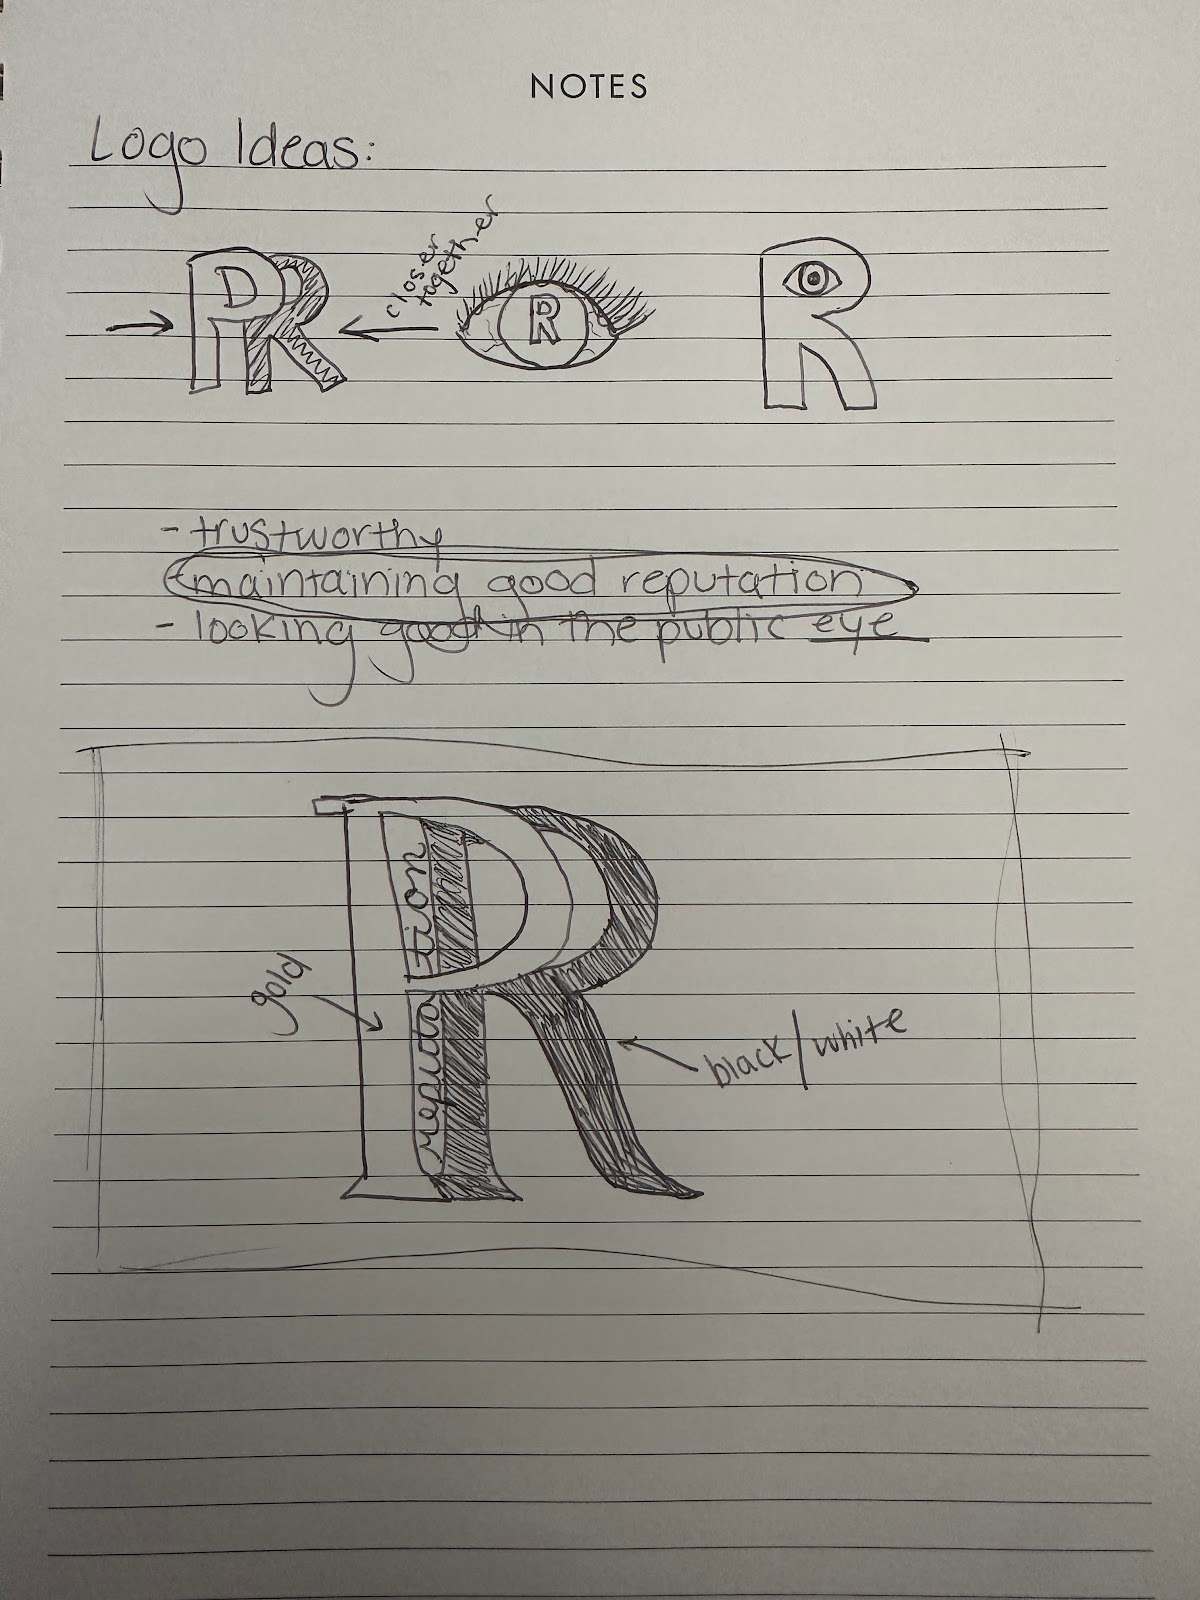 NOTES
Logo Ideas:
PR
closer
together
R
R
- trustworthy
- maintaining good reputation
- looking good in the public eye
PR
reputation
gold
black/white